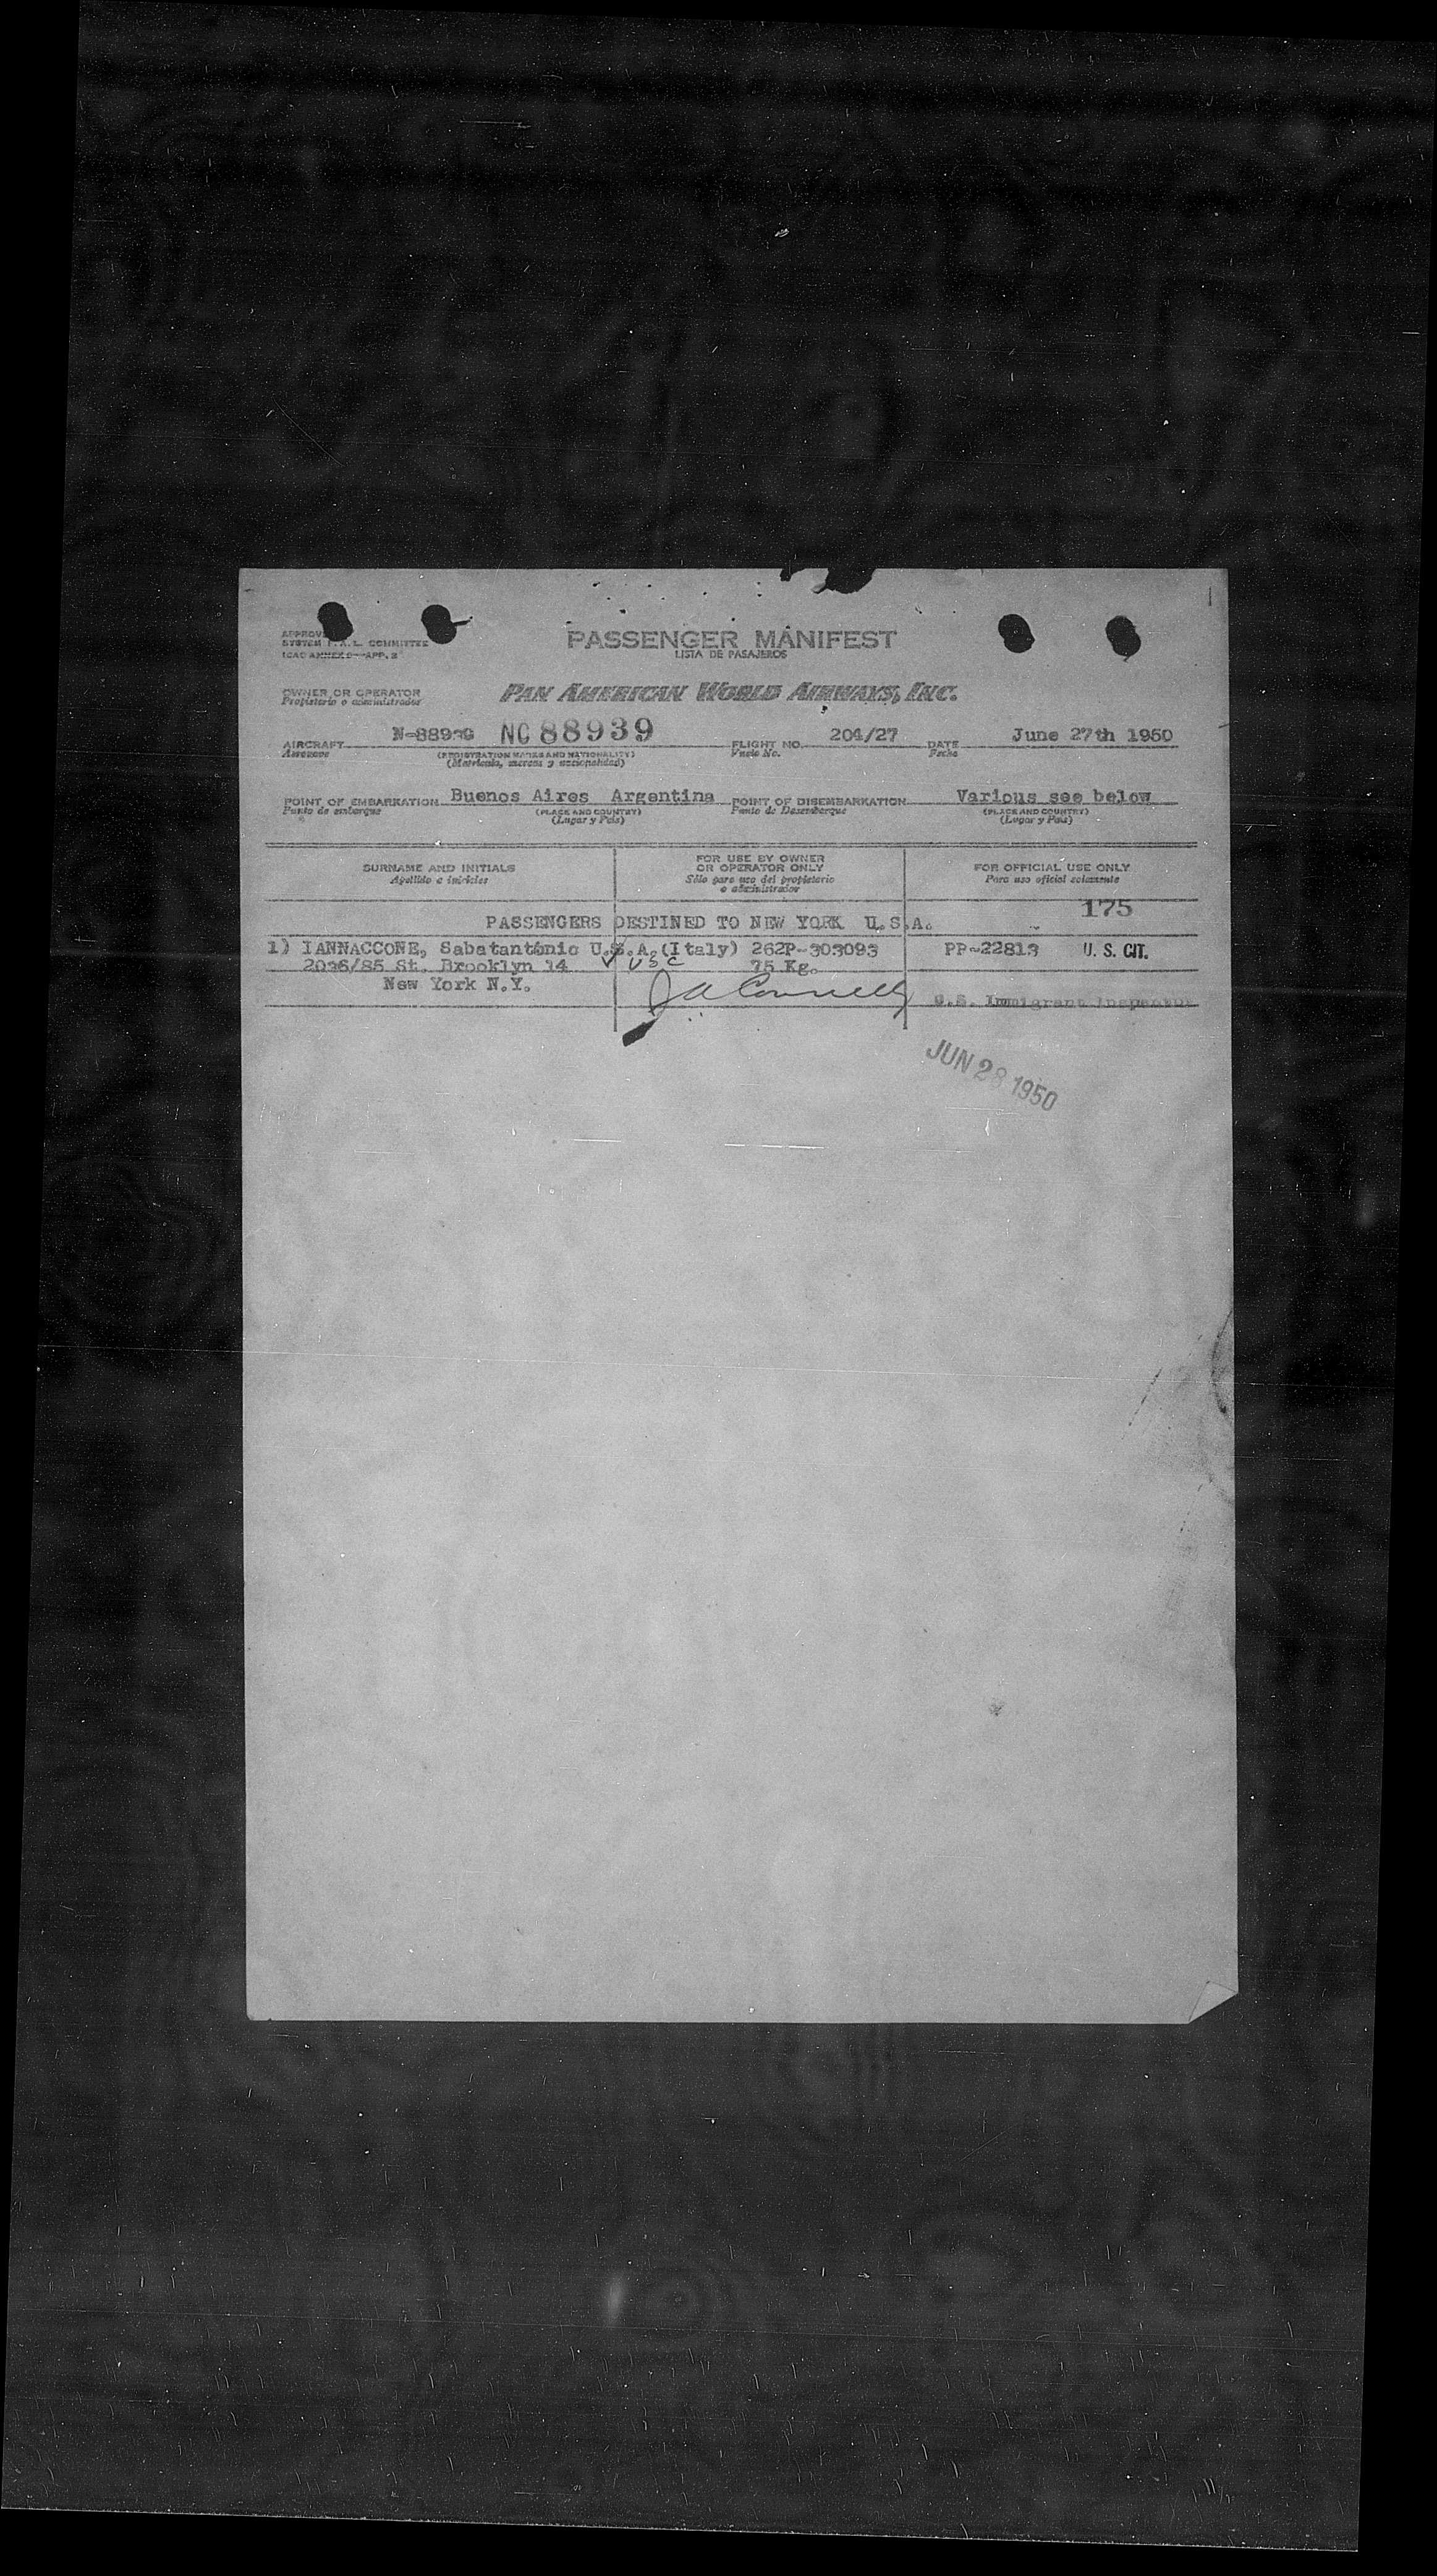 PASSENGER MANIFEST
LISTA DE PASAJEROS
APPROVED
SYSTEM F.A.L. COMMITTEE
ICAO ANNEX 9—APP. 3
OWNER OR OPERATOR
Propietario o administrador
PAN AMERICAN WORLD AIRWAYS, INC.
AIRCRAFT N-88939 NC 88939 FLIGHT NO. 204/27 DATE June 27th 1950
Aeronave (REGISTRATION MARKS AND NATIONALITY) Vuelo No. Fecha
(Matrícula, marcas y nacionalidad)
POINT OF EMBARKATION Buenos Aires Argentina POINT OF DISEMBARKATION Various see below
Punto de embarque (PLACE AND COUNTRY) Punto de Desembarque (PLACE AND COUNTRY)
(Lugar y País) (Lugar y País)
SURNAME AND INITIALS
Apellido e iniciales
FOR USE BY OWNER
OR OPERATOR ONLY
Sólo para uso del propietario
o administrador
FOR OFFICIAL USE ONLY
Para uso oficial solamente
175
PASSENGERS DESTINED TO NEW YORK U.S.A.
1) IANNACCONE, Sabatantónio U.S.A.(Italy) 262P-303093 PP-22813 U. S. CIT.
2036/85 St. Brooklyn 14 USC 75 Kg.
New York N.Y.
U.S. Immigrant Inspector
JUN 28 1950